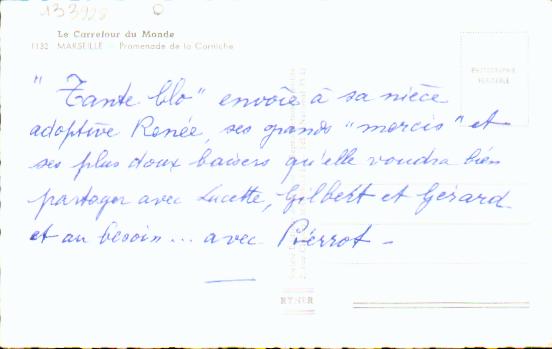 133928
Le Carrefour du Monde
1132 MARSEILLE - Promenade de la Corniche
"Tante Clo" envoie à sa nièce
adoptive Renée, ses grands "mercis" et
ses plus doux baisers qu'elle voudra bien
partager avec Lucette, Gilbert et Gérard
et au besoin... avec Pierrot -
PHOTOGRAPHIE
VERITABLE
RYNER